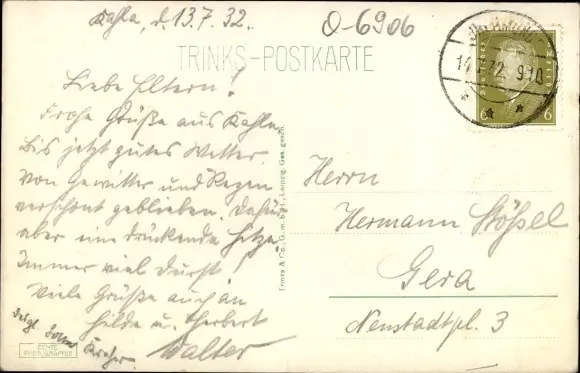 Kahla, d. 13.7.32.
O-6906
TRINKS-POSTKARTE
14.7.32. 9-10
6 6
Liebe Eltern!
Frohe Grüße aus Kahla.
Bis jetzt gutes Wetter.
Von Gewitter und Regen
verschont geblieben. Dafür
aber eine drückende Hitze.
Immer viel Durst!
Viele Grüße auch an
Hilde u. Herbert
Walter
Trinks & Co., G.m.b.H., Leipzig. Ges. gesch.
Herrn
Hermann Stößel
Gera
Neustadtpl. 3
ECHTE
PHOTOGRAPHIE